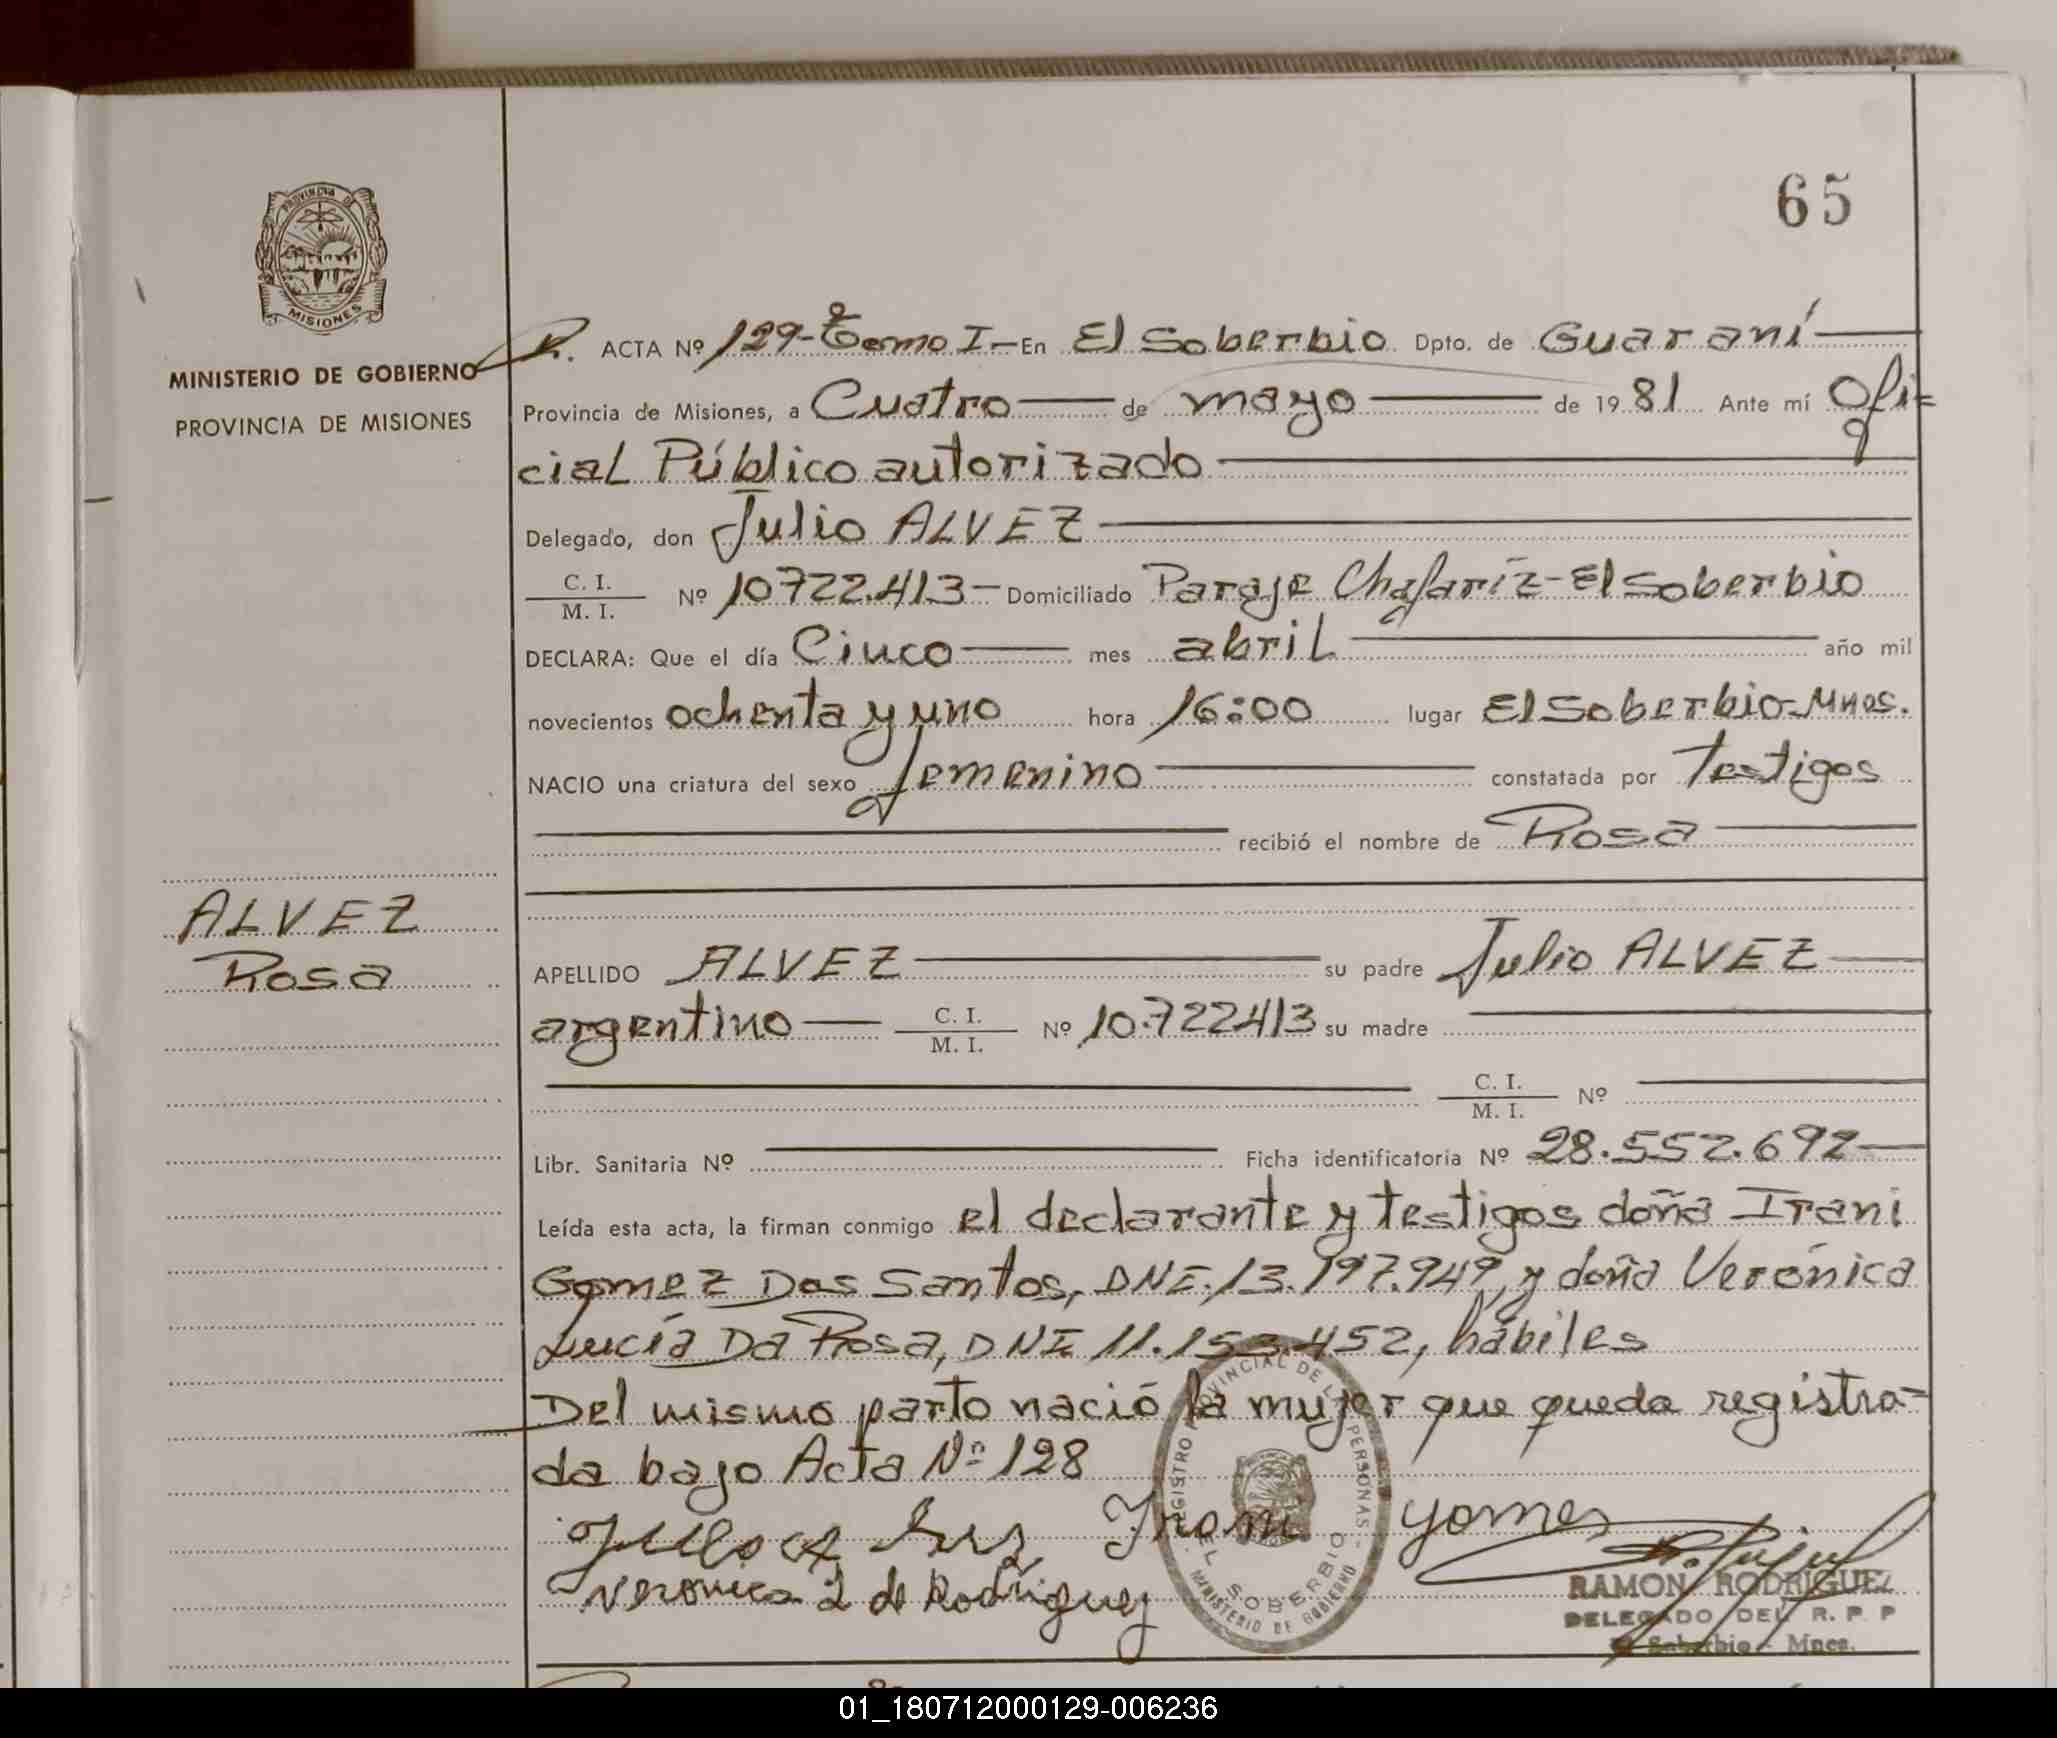 65
PROVINCIA DE
MISIONES
MINISTERIO DE GOBIERNO
PROVINCIA DE MISIONES
R. ACTA Nº 129-Tomo I-En El Soberbio Dpto. de Guaraní
Provincia de Misiones, a Cuatro de mayo de 1981 Ante mí Ofi-
cial Público autorizado
Delegado, don Julio ALVEZ
C. I.
M. I. Nº 10722.413- Domiciliado Paraje Chafaríz-El Soberbio
DECLARA: Que el día Cinco mes abril año mil
novecientos ochenta y uno hora 16:00 lugar El Soberbio-Mnes.
NACIO una criatura del sexo femenino constatada por Testigos
recibió el nombre de Rosa
ALVEZ
Rosa
APELLIDO ALVEZ su padre Julio ALVEZ
argentino C. I.
M. I. Nº 10.722413 su madre
C. I.
M. I. Nº
Libr. Sanitaria Nº Ficha identificatoria Nº 28.552.692
Leída esta acta, la firman conmigo el declarante y testigos doña Irani
Gomez Dos Santos, DNI. 13.197.949, y doña Verónica
Lucía Da Rosa, DNI 11.153.452, hábiles
Del mismo parto nació la mujer que queda registra-
da bajo Acta Nº 128
Irani gomes
Veronica L de Rodriguez
REGISTRO PROVINCIAL DE LAS PERSONAS - MINISTERIO DE GOBIERNO
EL SOBERBIO
RAMON RODRIGUEZ
DELEGADO DEL R. P. P
El Soberbio - Mnes.
01_180712000129-006236